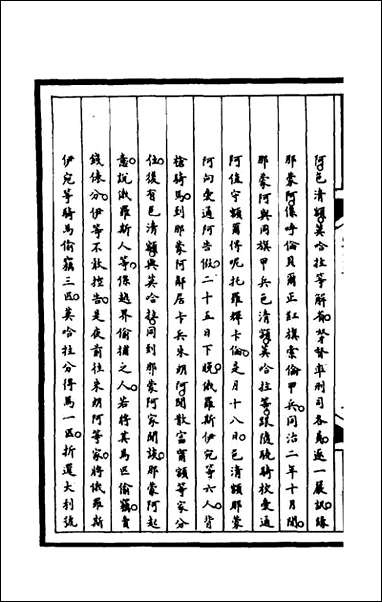 阿色清額莫哈拉等解前督率刑司各員逐一展訊緣
那蒙阿係呼倫貝爾正紅旗索倫甲兵同治二年十月間
那蒙阿與同旗甲兵色清額莫哈拉等跟隨驍騎校愛通
阿值守額爾得呢托羅輝卡倫是月十八日色清額那蒙
阿向愛通阿告假二十五日下晚俄羅斯伊宛等六人背
槍騎馬到那蒙阿鄰居卡兵朱朗阿閒散富甯額等家分
住後有色清額與莫哈拉同到那蒙阿家閒談那蒙阿起
意說俄羅斯人等係越界偷捕之人若將其馬匹偷竊賣
錢俵分伊等不敢控告是夜前往朱朗阿等家將俄羅斯
伊宛等騎馬偷竊三匹莫哈拉分得馬一匹折還大利號